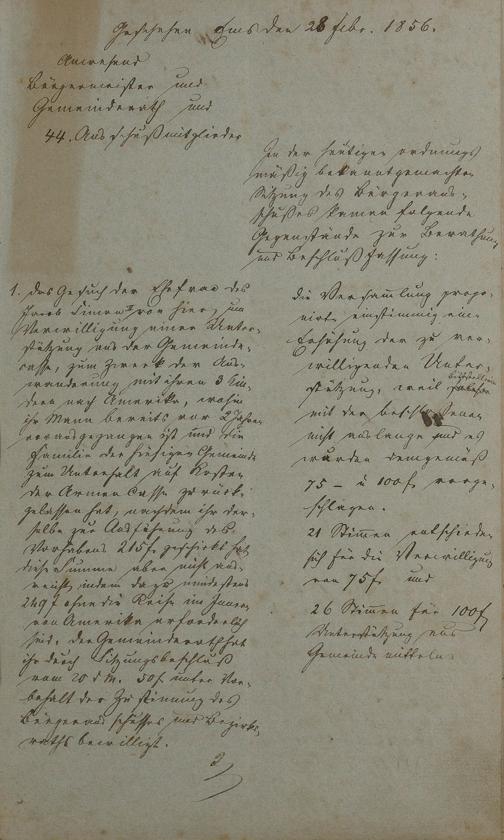 Geschehen Ems den 28 Febr. 1856.
Anwesend
Bürgermeister und
Gemeinderath und
44. Ausschußmitglieder
In der heutigen ordnungs
mäßig bekanntgemachten
Sitzung des Bürgeraus-
schußes kamen folgende
Gegenstände zur Berathung
und Beschlußfassung:
1. Das Gesuch der Ehefrau des
Jacob Simon von hier, um
Verwilligung einer Unter-
stützung aus der Gemeinde-
casse, zum Zweck der Aus-
wanderung mit ihren 3 Kin-
dern nach Amerika, wohin
ihr Mann bereits vor 2 Jahren
vorausgegangen ist und die
Familie der hiesigen Gemeinde
zum Unterhalt auf Kosten
der Armen Casse zurück-
gelassen hat, nachdem ihr der-
selbe zur Ausführung des
Vorhabens 215 f. geschickt hat,
diese Summe aber nicht aus-
reicht, indem dazu mindestens
249 f ohne die Reise im Innern
von Amerika erforderlich
sind. Der Gemeinderath hat
ihr durch Sitzungsbeschluß
vom 20 d M. 50 f. unter Vor-
behalt der Zustimmung des
Bürgerausschußes und Bezirks-
raths bewilligt.
die Versammlung propo-
nirte einstimmig eine
Erhöhung der zu ver-
willigenden Unter-
stützung, weil
mit der beschlossenen
nicht auslange und es
wurden demgemäß
75 – u 100 f. vorge-
schlagen.
21 Stimmen entschieden
sich für die Verwilligung
von 75 f. und
26 Stimmen für 100 f
Unterstützung aus
Gemeindemitteln.